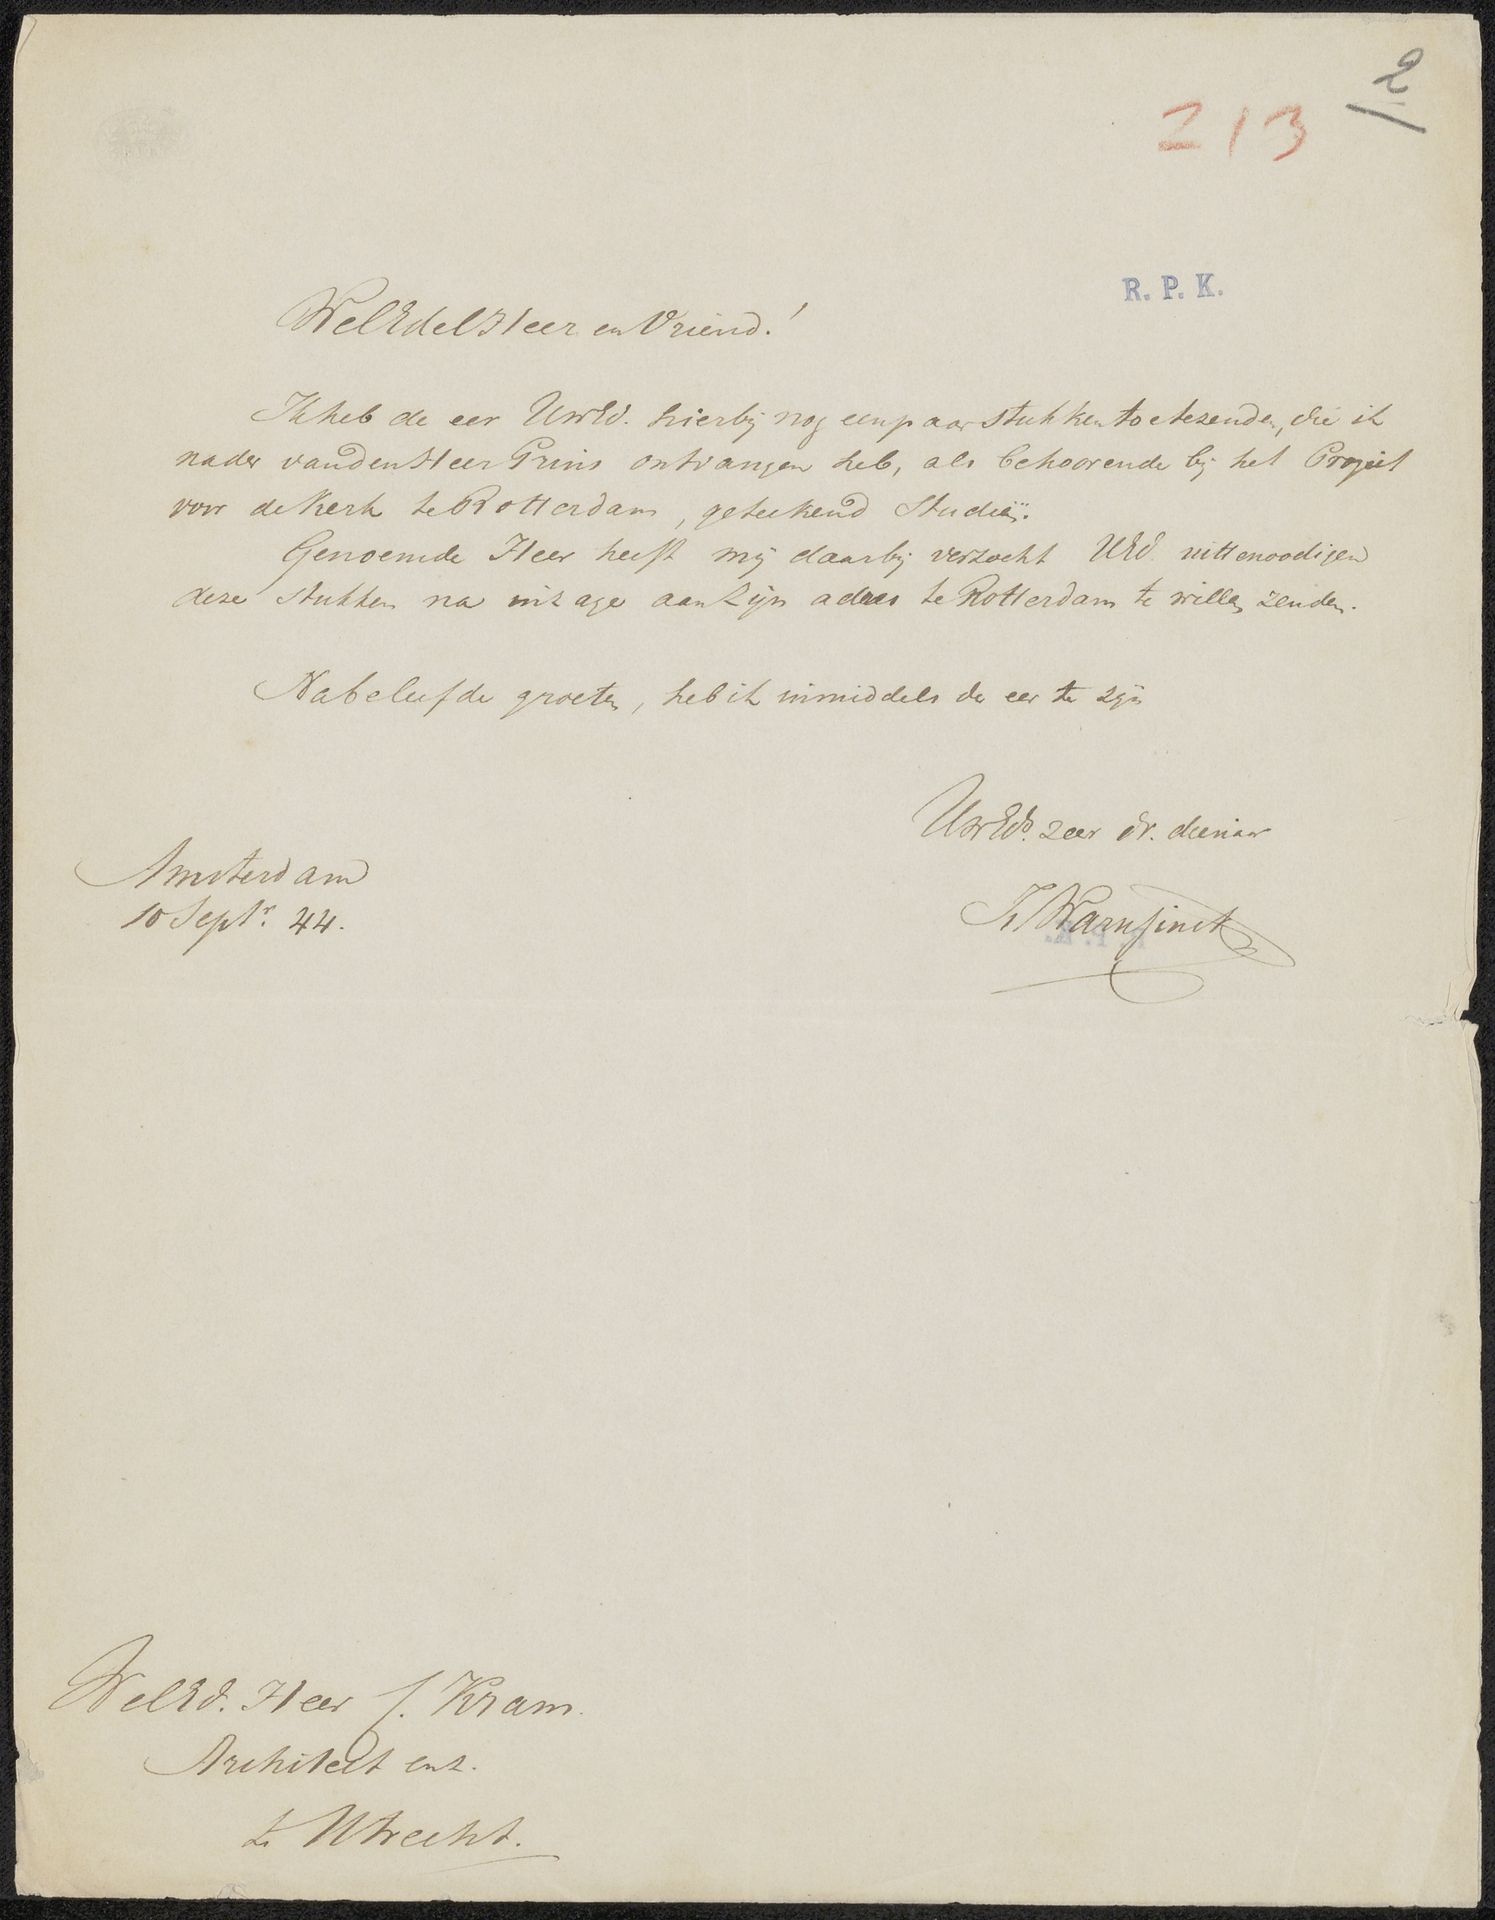 2
213
R. P. K.
WelEdel Heer en Vriend!
Ik heb de eer UwEd. hierbij nog een paar stukken toetezenden, die ik
nader van den Heer Grins ontvangen heb, als behoorende bij het Projeet
voor de Kerk te Rotterdam, geteekend Studie.
Genoemde Heer heeft mij daarbij verzocht UEd. uittenoodigen
deze stukken na inzage aan zijn adres te Rotterdam te willen zenden.
Na beleefde groeten, heb ik inmiddels de eer te zijn
UwEds. zeer dv. dienaar
Amsterdam
10 Septr. 44.
Warnsinck
WelEd. Heer C. Kram.
Architect enz.
te Utrecht.